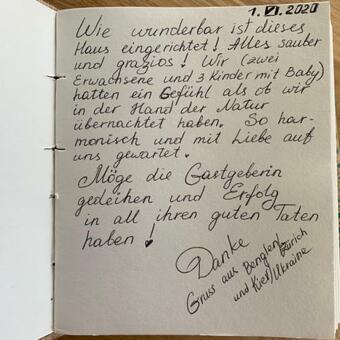 1. VI. 2020
Wie wunderbar ist dieses
Haus eingerichtet! Alles sauber
und graziös! Wir (zwei
Erwachsene und 3 Kinder mit Baby)
hatten ein Gefühl als ob wir
in der Hand der Natur
übernachtet haben. So har-
monisch und mit Liebe auf
uns gewartet.
Möge die Gastgeberin
gedeihen und Erfolg
in all ihren guten Taten
haben!
Danke
Gruss aus Benglen, Zürich
und Kiev/Ukraine